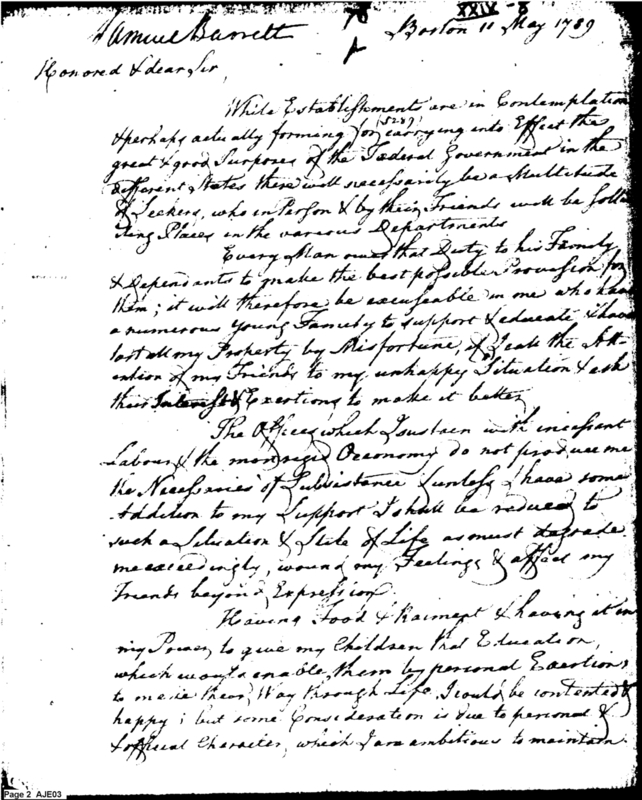 Samuel Barrett
78
XXIX - 8
Boston 11 May 1789
Honored & dear Sir,
While Establishments are in Contemplation
(5289)
& perhaps actually forming for carrying into Effect the
great & good Purposes of the Fæderal Government in the
different States there will necessarily be a Multitude
of Seekers, who in Person & by their Friends will be solli
ting Places in the various Departments
Every Man owes that Duty to his Family
& Dependants to make the best possible Provision for
them; it will therefore be excuseable in one who have
a numerous young Family to support & educate & have
lost all my Property by Misfortune, if I call the Att-
ention of my Friends to my unhappy Situation & ask
their Interest & Exertions to make it better
The Offices which I sustain with incessant
Labour & the most rigid Oeconomy do not produce me
the Necessaries of Subsistance & unless I have some
Addition to my Support I shall be reduced to
such a Situation & State of Life as must degrade
me exceedingly, wound my Feelings & affect my
Friends beyond Expression.
Having Food & Raiment & having it in
my Power to give my Children that Education,
which would enable them by personal Exertions
to make their Way through Life, I could be contented &
happy; but some Consideration is due to personal &
& official Character, which I am ambitious to maintain
Page 2 AJE03